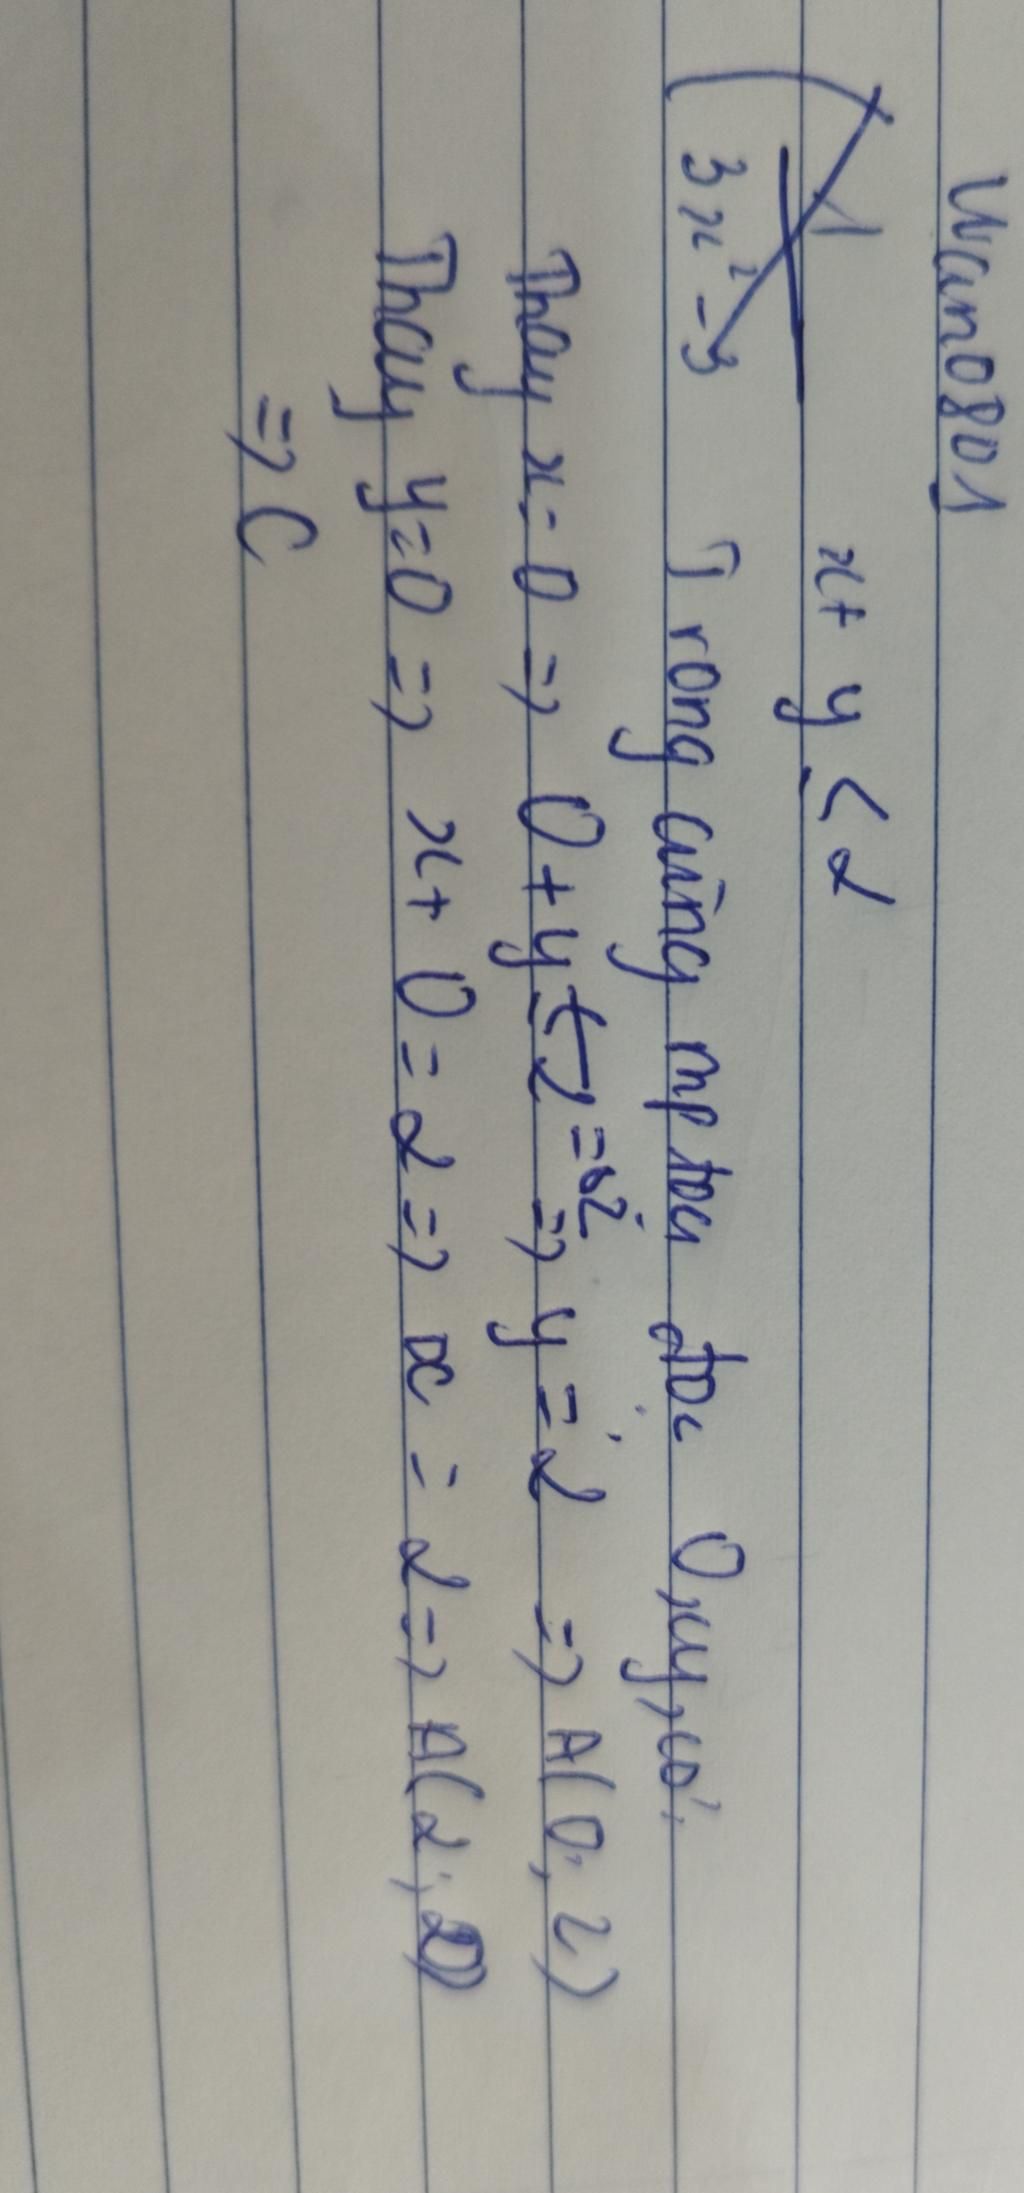 Wano801
x + y ≤ 2
1
3x² - 3
Trong cùng mp toạ độ Oxy, có:
Thay x = 0 => 0 + y = 2 => y = 2 => A(0; 2)
Thay y = 0 => x + 0 = 2 => x = 2 => A(2; 0)
=> C